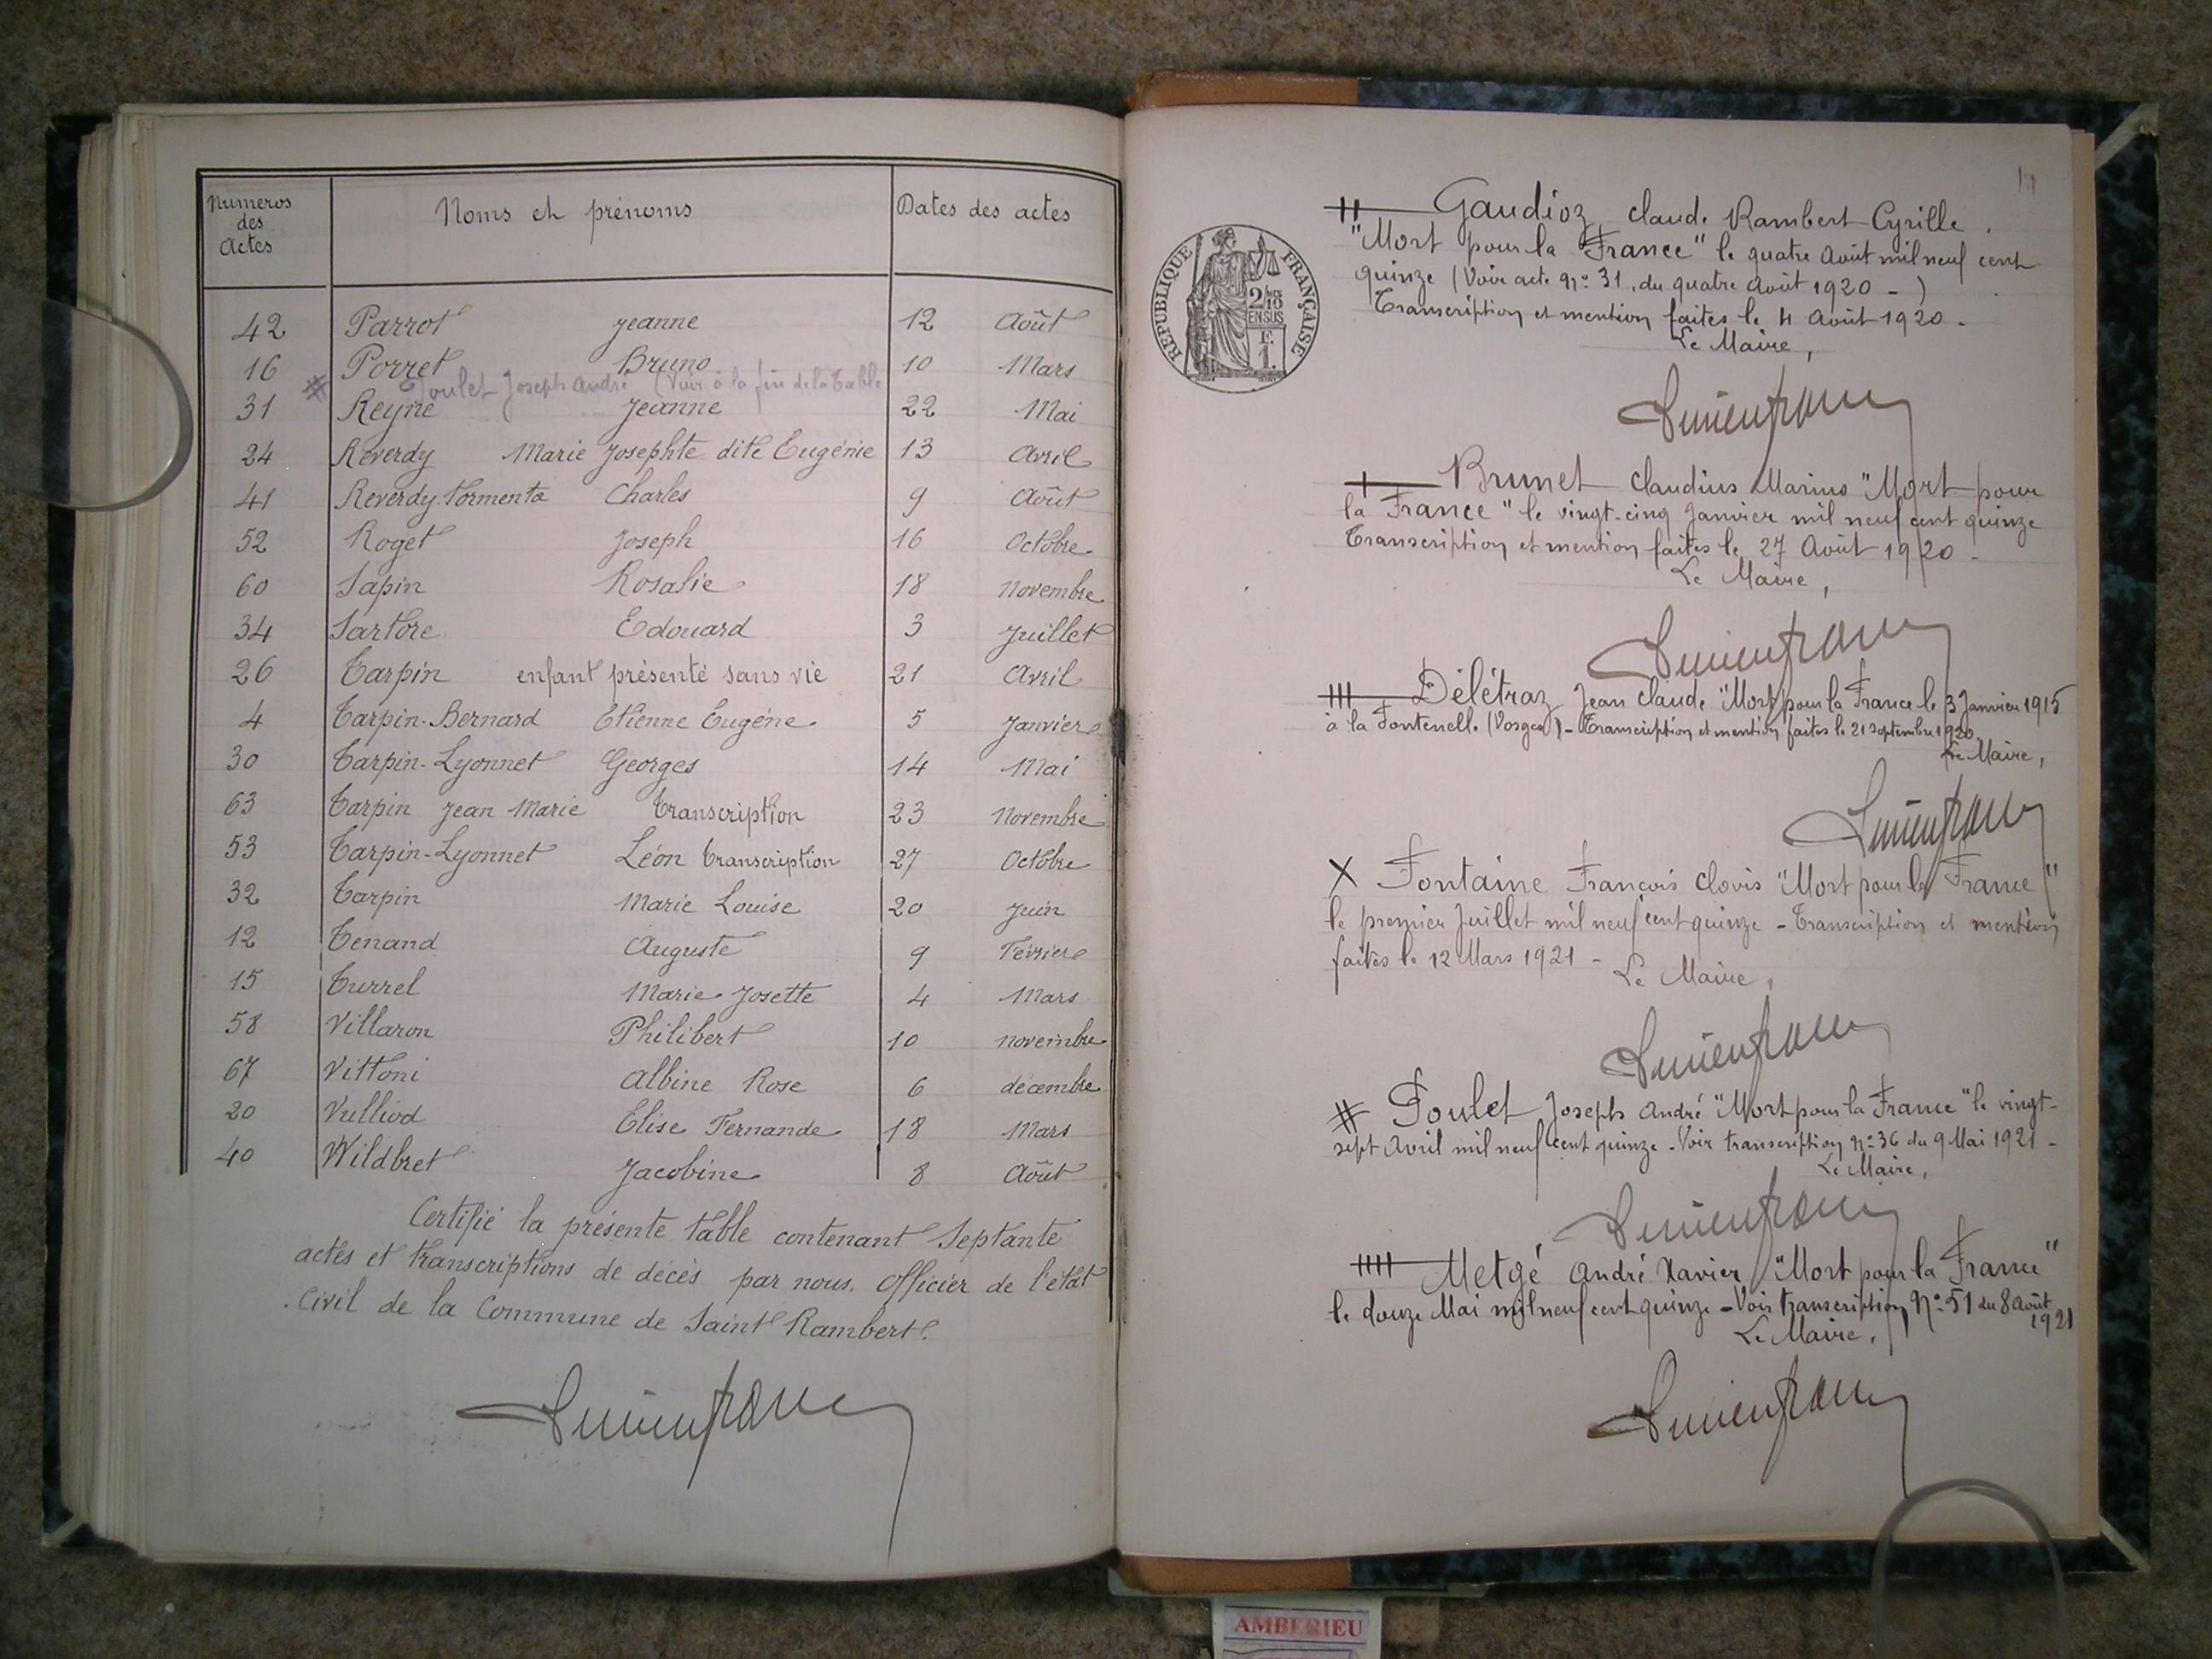 Numéros des Actes | Noms et prénoms | Dates des actes
42 Parrot Jeanne 12 Août
16 Porret Bruno 10 Mars
# Poulet Joseph André (Voir à la fin de la table
31 Reyne Jeanne 22 Mai
24 Reverdy Marie Josephte dite Eugénie 13 Avril
41 Reverdy-Tormenta Charles 9 Août
52 Roget Joseph 16 Octobre
60 Sapin Rosalie 18 Novembre
34 Sartore Edouard 3 Juillet
26 Tarpin enfant présenté sans vie 21 Avril
4 Tarpin-Bernard Etienne Eugène 5 Janvier
30 Tarpin-Lyonnet Georges 14 Mai
63 Tarpin Jean Marie Transcription 23 Novembre
53 Tarpin-Lyonnet Léon Transcription 27 Octobre
32 Tarpin Marie Louise 20 Juin
12 Tenand Auguste 9 Février
15 Turrel Marie Josette 4 Mars
58 Villaron Philibert 10 novembre
67 Vittoni Albine Rose 6 décembre
20 Vulliod Elise Fernande 18 Mars
40 Wildbret Jacobine 8 Août
Certifié la présente table contenant Septante
actes et transcriptions de décès par nous, Officier de l'état
Civil de la Commune de Saint Rambert.
RÉPUBLIQUE FRANÇAISE
2/10
EN SUS
F.
1.
Gaudioz Claude Rambert Cyrille.
"Mort pour la France" le quatre Août mil neuf cent
quinze (Voir acte No 31, du quatre Août 1920 - )
Transcription et mention faites le 4 Août 1920 -
Le Maire,
Brunet Claudius Marius "Mort pour
la France" le vingt-cinq Janvier mil neuf cent quinze
Transcription et mention faites le 27 Août 1920 -
Le Maire,
Délétraz Jean Claude "Mort pour la France le 3 Janvier 1915
à la Fontenelle (Vosges) - Transcription et mention faites le 21 Septembre 1920
Le Maire,
X Fontaine François Clovis "Mort pour la France"
le premier Juillet mil neuf cent quinze - Transcription et mention
faites le 12 Mars 1921 -
Le Maire,
# Poulet Joseph André "Mort pour la France" le vingt-
sept Avril mil neuf cent quinze - Voir transcription No 36 du 9 Mai 1921 -
Le Maire,
Metgé André Xavier "Mort pour la France"
le douze Mai mil neuf cent quinze - Voir transcription No 51 du 8 Août
1921
Le Maire,
AMBERIEU